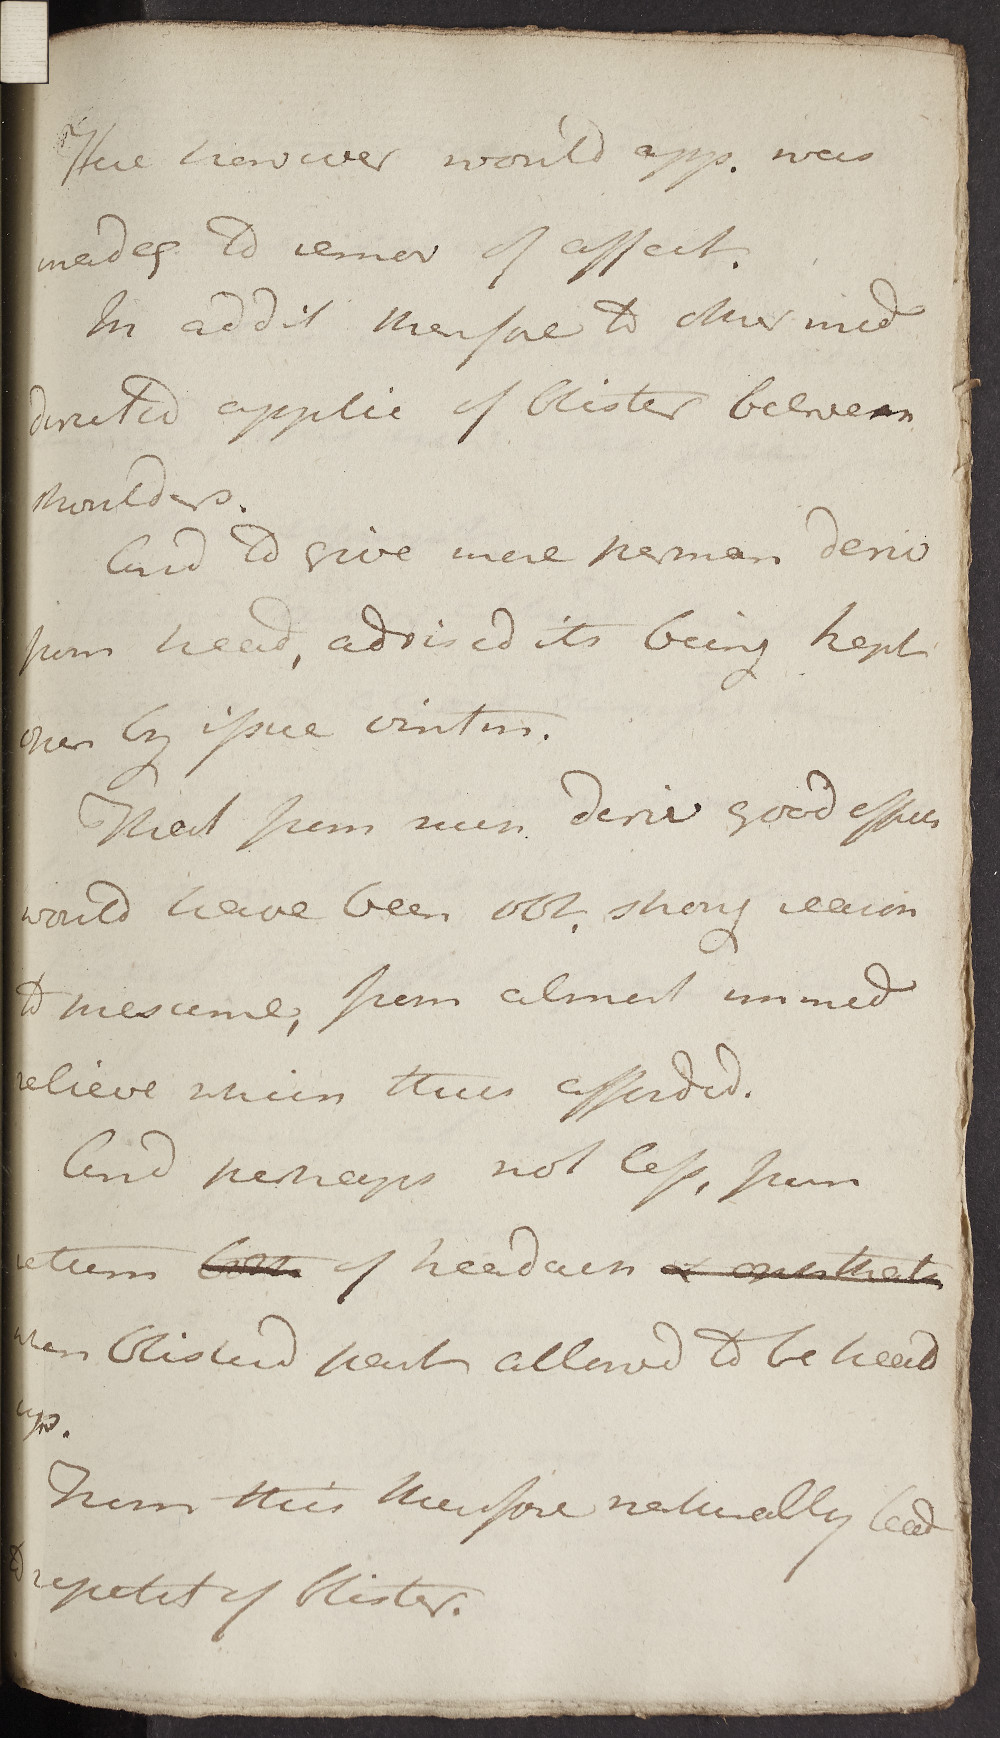 This however would app. was
inadeq to remov of affect.
In addit therefore to other med
directed applic of blister between
shoulders.
And to give more perman deriv
from head, advised its being kept
open by issue ointm.
That from such deriv good effects
would have been obt, strong reason
to presume, from almost immed
relieve which thus afforded.
And perhaps not less, from
return both of headach &
when blistered part allowed to be heald
up.
From this therefore naturally lead
to repetit of blister.